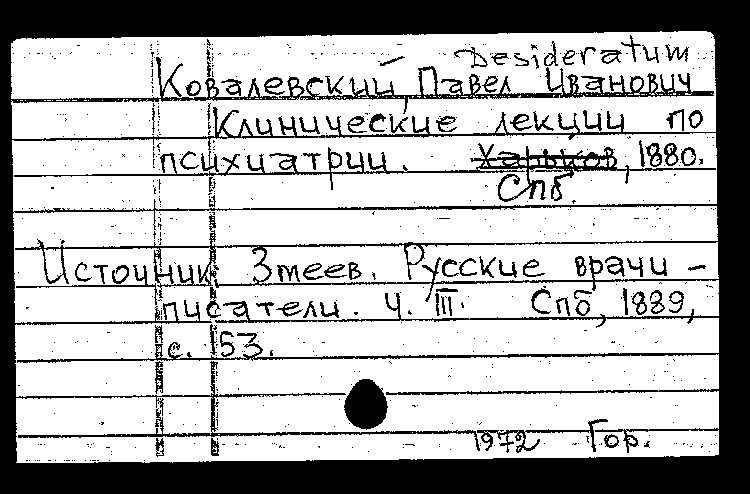 Desideratum
Ковалевский, Павел Иванович
Клинические лекции по
психиатрии. Харьков, 1880.
Спб.
Источник: Змеев. Русские врачи -
писатели. Ч. III. Спб, 1889,
с. 153.
1972 Гор.